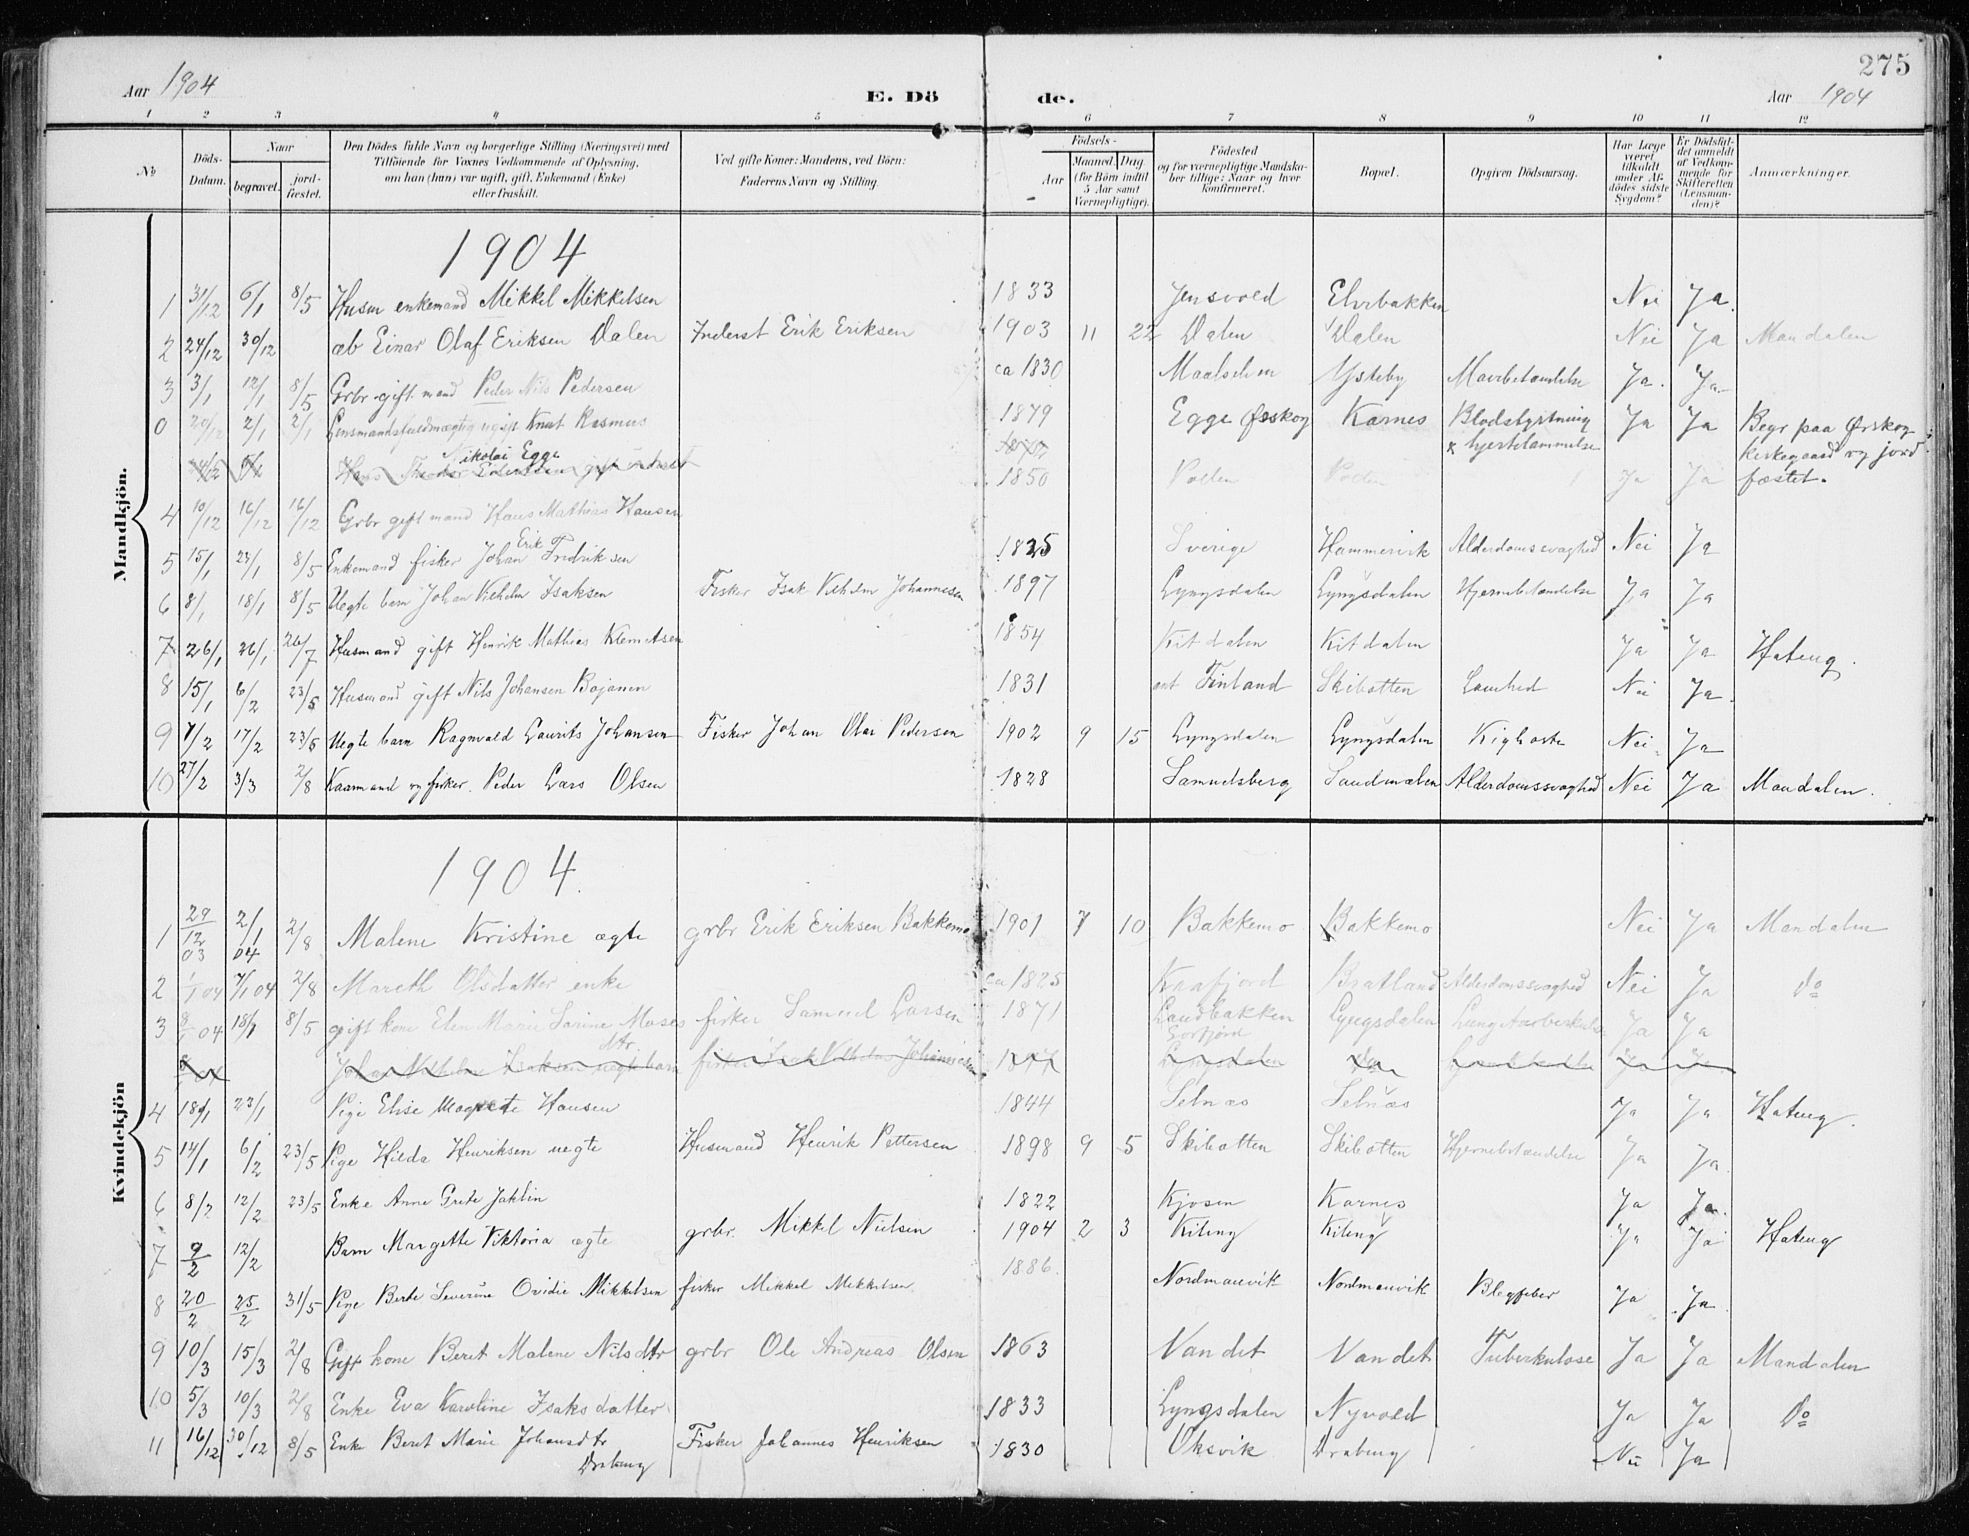 275
Aar 1904 E. Dö de. Aar 1904
1 2 3 4 5 6 7 8 9 10 11 12
No Döds-Datum. Naar begravet. jordfæstet. Den Dödes fulde Navn og borgerlige Stilling (Næringsvei) med Tilföiende for Voxnes Vedkommende af Oplysning, om han (hun) var ugift, gift, Enkemand (Enke) eller fraskilt. Ved gifte Koner: Mandens, ved Börn: Faderens Navn og Stilling. Födsels- Aar Maaned. Dag. (for Börn indtil 5 Aar samt Værnepligtige). Födested og for værnepligtige Mandskaber tillige: Naar og hvor konfirmeret. Bopæl. Opgiven Dödsaarsag. Har Læge været tilkaldt under Afdödes sidste Sygdom? Er Dödsfaldet anmeldt af Vedkommende for Skifteretten (Lensmanden)? Anmærkninger.
Mandkjön.
1904
1 31/12 6/1 8/5 Husm enkemand Mikkel Mikkelsen 1833 Jensvold Elvebakken Nei Ja.
2 24/12 30/12 æb Einar Olaf Eriksen Dalen Inderst Erik Eriksen 1903 11 22 Dalen Dalen Nei Ja Mandalen
3 3/1 12/1 8/5 Grbr gift mand Peder Nils Pedersen ca 1830 Maalselven Ysteby Mavebetændelse Ja. Ja
0 20/12 2/1 2/1 Lensmandsfuldmægtig ugift Knut Rasmus 1879 Egge Ørskog Karnes Blodstyrtning Ja Ja Begr paa Ørskog
Nikolai Egge hjertelammelse kirkegaard og jord
fæstet.
4 10/12 16/12 16/12 Grbr gift mand Hans Mathias Hansen 1850 Polten Polten Ja Ja
5 15/1 24/1 8/5 Enkemand fisker Johan Erik Fredriksen 1825 Sverige Hammervik Alderdomssvaghed Nei Ja
6 8/1 18/1 8/5 Uegte barn Johan Vilhelm Isaksen Fisker Isak Vilhelm Johannesen 1897 Lyngsdalen Lyngsdalen Hjernebetændelse Ja Ja
7 26/1 26/1 26/7 Husmand gift Henrik Mathias Klemetsen 1854 Kitdalen Kitdalen Ja Ja Hateng.
8 15/1 6/2 23/5 Husmand gift Nils Johansen Bajanen 1831 Finland Skibotten Lamhed Nei Ja
9 7/2 17/2 23/5 Uegte barn Ragnvald Laurits Johansen Fisker Johan Olai Pedersen 1902 9 15 Lyngsdalen Lyngsdalen Kighoste Nei Ja
10 27/2 3/3 2/8 Kaarmand og fisker. Peder Lars Olsen 1828 Samuelsberg Sandmælen Alderdomssvaghed Nei Ja Mandalen.
Kvindekjön
1904.
1 29/12 03 2/1 04 2/8 Malene Kristine ægte grbr Erik Eriksen Bakkemo 1901 7 10 Bakkemo Bakkemo Nei Ja Mandalen
2 1/1 04 7/1 04 2/8 Mareth Olsdatter enke ca 1825 Kaafjord Bratland Alderdomssvaghed Nei Ja Do
3 8/1 04 18/1 8/5 gift kone Elen Marie Sarine Moses dtr. fisker Samuel Larsen 1871 Sandbakken Sørfjord Lyngsdalen Lungetuberkulose Ja Ja
Johan Vilhelm Isaksen uegte barn fisker Isak Vilhelm Johannesen 1897 Lyngsdalen
4 18/1 23/1 Pige Elise Magrete Hansen 1844 Selnæs Selnæs Ja Ja Hateng.
5 14/1 6/2 23/5 Pige Hilda Henriksen uegte Husmand Henrik Pettersen 1898 9 5 Skibotten Skibotten Hjernebetændelse Ja Ja.
6 8/2 12/2 23/5 Enke Anne Grete Jaklin 1822 Kjosen Karnes Ja Ja.
7 9/2 12/2 Barn Margette Viktoria ægte grbr. Mikkel Nielsen 1904 2 3 Kiteng Kiteng Ja Ja Hateng
8 20/2 25/2 31/5 Pige Berte Severine Ovidie Mikkelsen fisker Mikkel Mikkelsen 1886 Nordmanvik Nordmanvik Blegfeber Ja Ja.
9 10/3 15/3 2/8 Gift kone Beret Malene Nilsdtr grbr Ole Andreas Olsen 1863 Vandet Vandet Tuberkulose Ja Ja Mandalen
10 5/3 10/3 2/8 Enke Eva Karoline Isaksdatter 1833 Lyngsdalen Nyvold Ja Ja Do
11 16/12 30/12 8/5 Enke Beret Marie Johansdtr Fisker Johannes Henriksen 1830 Oksvik Drabeng Nei Ja
Drabeng